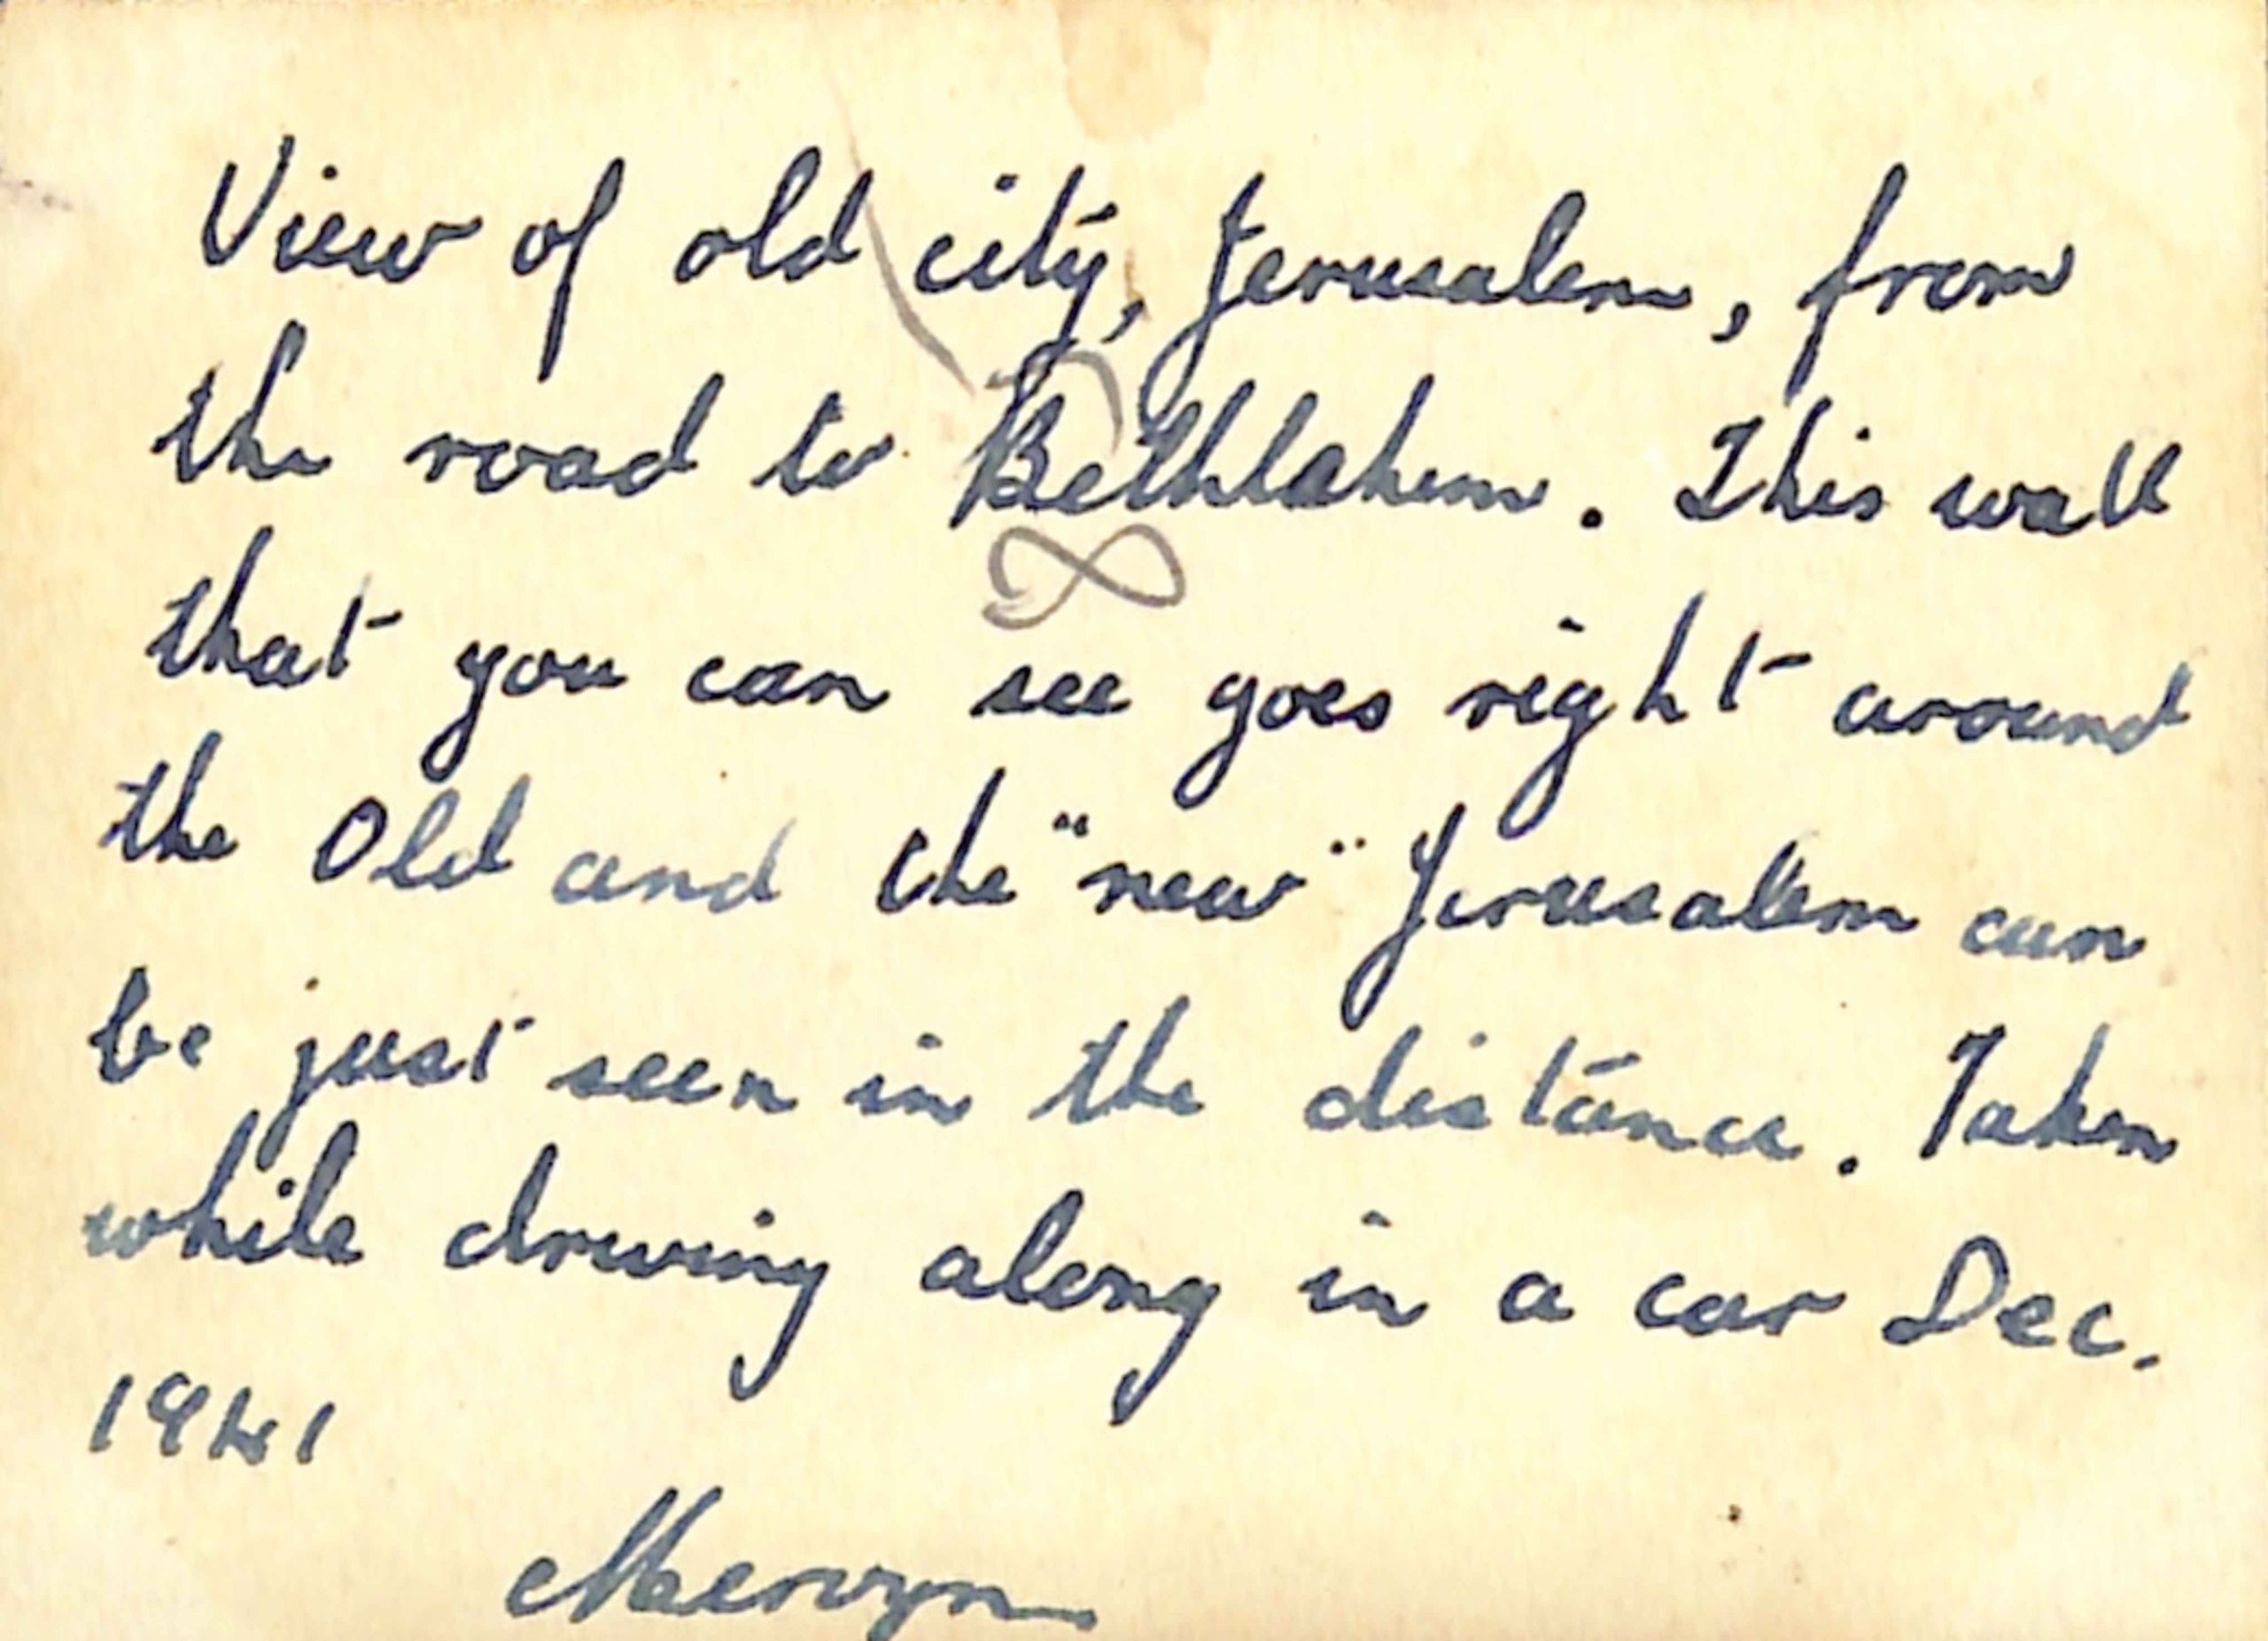 View of old city, Jerusalem, from
the road to Bethlahem. This wall
that you can see goes right around
the Old and the "new" Jerusalem can
be just seen in the distance. Taken
while driving along in a car Dec.
1941
Mervyn
8